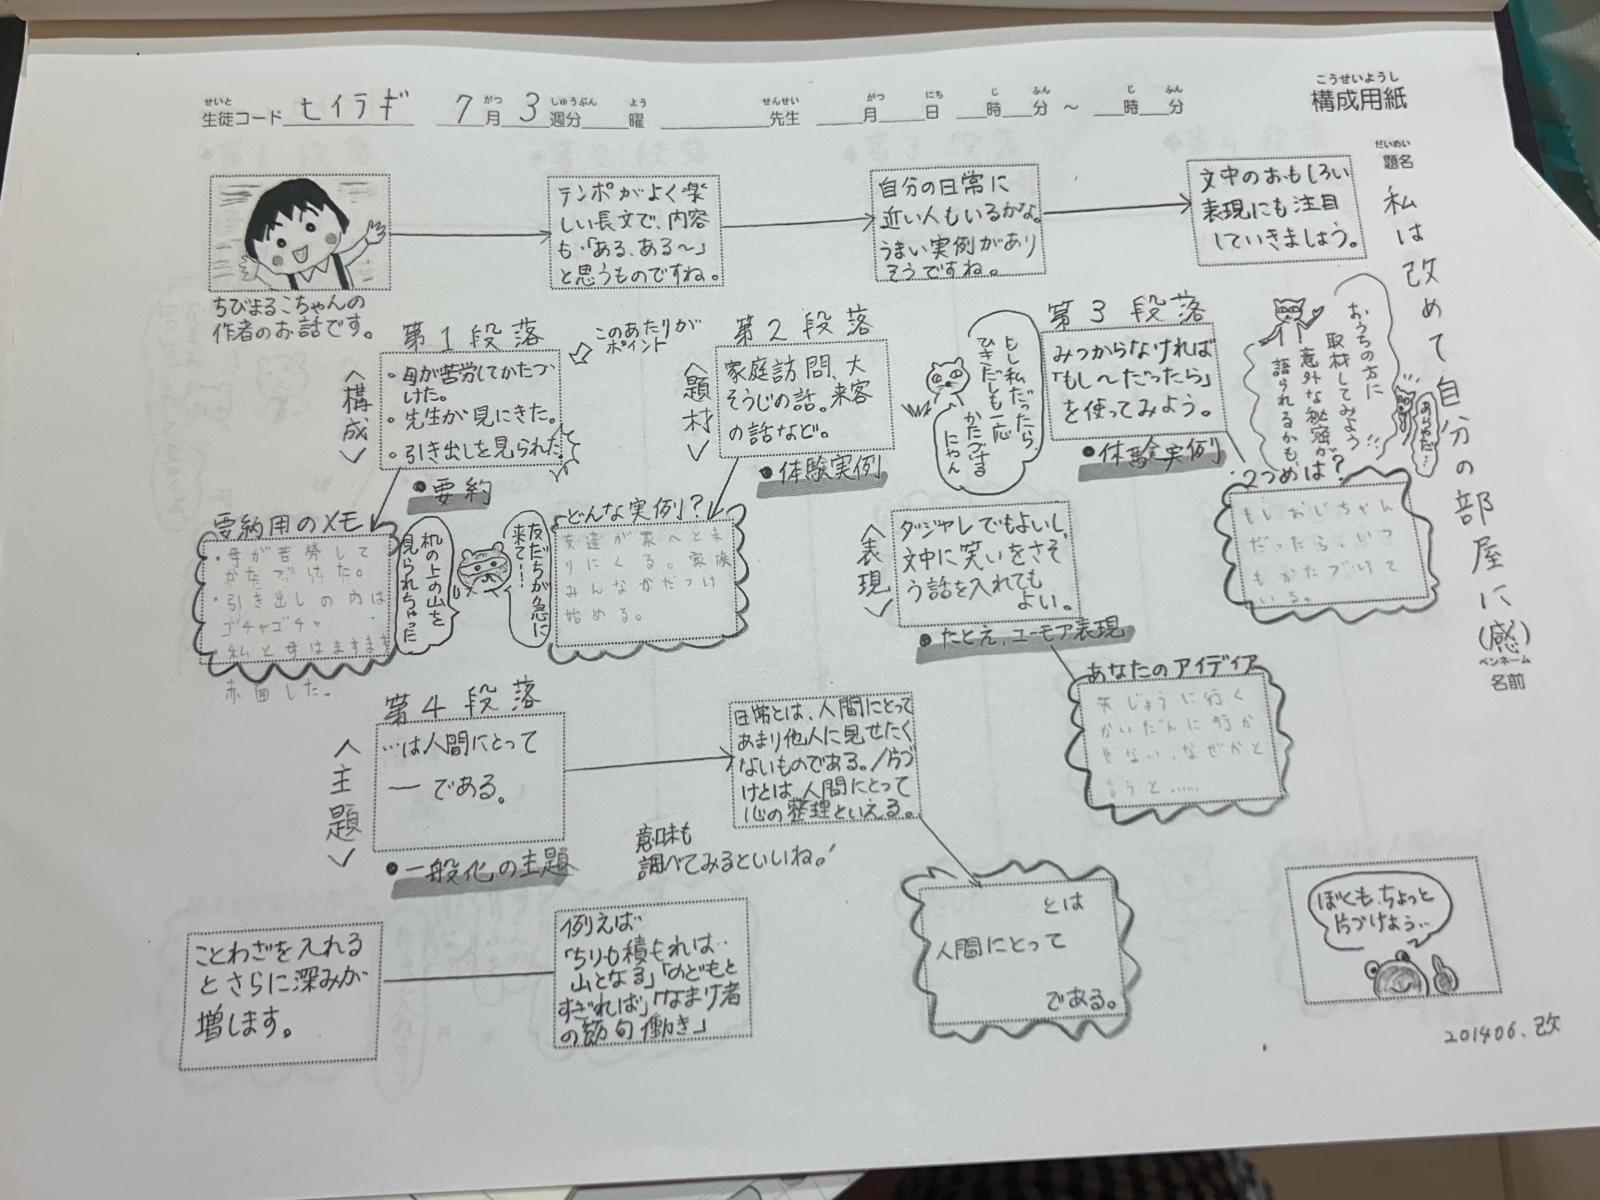 構成用紙
こうせいようし
生徒コード ヒイラギ 7月3週分 曜 先生 月 日 時 分 ～ 時 分
せいと がつ しゅうぶん よう せんせい がつ にち じ ふん じ ふん
題名
だいめい
私は改めて自分の部屋に(感)
ペンネーム
名前
ちびまるこちゃんの
作者のお話です。
テンポがよく楽
しい長文で、内容
も「ある、ある～」
と思うものですね。
自分の日常に
近い人もいるかな。
うまい実例があり
そうですね。
文中のおもしろい
表現にも注目
していきましょう。
第1段落
このあたりが
ポイント
<構成>
・母が苦労してかたづ
けた。
・先生が見にきた。
・引き出しを見られた。
●要約
要約用のメモ
・母が苦労して
かたづけた。
・引き出しの内は
ゴチャゴチャ
・私と母はますます
赤面した。
机の上の山を
見られちゃった
第2段落
<題材>
家庭訪問、大
そうじの話。来客
の話など。
●体験実例
どんな実例?
友達が家へとま
りにくる。家族
みんなかたづけ
始める。
友だちが急に
来て!!
第3段落
みつからなければ
「もし～だったら」
を使ってみよう。
●体験実例
もし私だったら、
ひきだしも一応
かたづける
にゃん
おうちの方に
取材してみよう!!
意外な秘密が
語られるかも
2つめは?
もしおじちゃん
だったら、いつ
もかたづけて
いる。
<表現>
ダジャレでもよいし、
文中に笑いをさそ
う話を入れても
よい。
●たとえ、ユーモア表現
あなたのアイディア
第4段落
<主題>
…は人間にとって
― である。
●一般化の主題
日常とは、人間にとって
あまり他人に見せたく
ないものである。/片づ
けとは、人間にとって
心の整理といえる。
意味も
調べてみるといいね。!
とは
人間にとって
である。
ことわざを入れる
とさらに深みが
増します。
例えば
「ちりも積もれば‥
山となる」「のどもと
すぎれば」「なまけ者
の節句働き」
ぼくも、ちょっと
片づけよう‥
201406.改